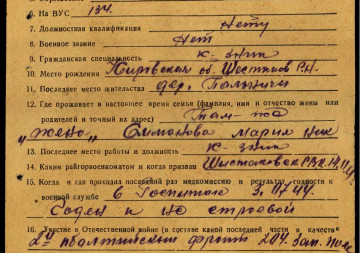 6. На ВУС 134.
7. Должностная квалификация Нету
8. Военное звание Нет
9. Гражданская специальность к-зник
10. Место рождения Кировская об. Шестаков р.н.
11. Последнее место жительства дер.
12. Где проживает в настоящее время семья (фамилия, имя и отчество жены или
родителей и точный адрес) Там-же
„жена„ Симакова Мария Ник
13. Последнее место работы и должность к-зник
14. Каким райгорвоенкоматом и когда призван Шестаковск
15. Когда и где проходил последний раз медкомиссию и результат годности к
военной службе в госпитале 3.
Годен к не строевой
16. Участие в Отечественной войне (в составе какой последней части в качестве
2й прбалтийский фронт 204. Зап. полк